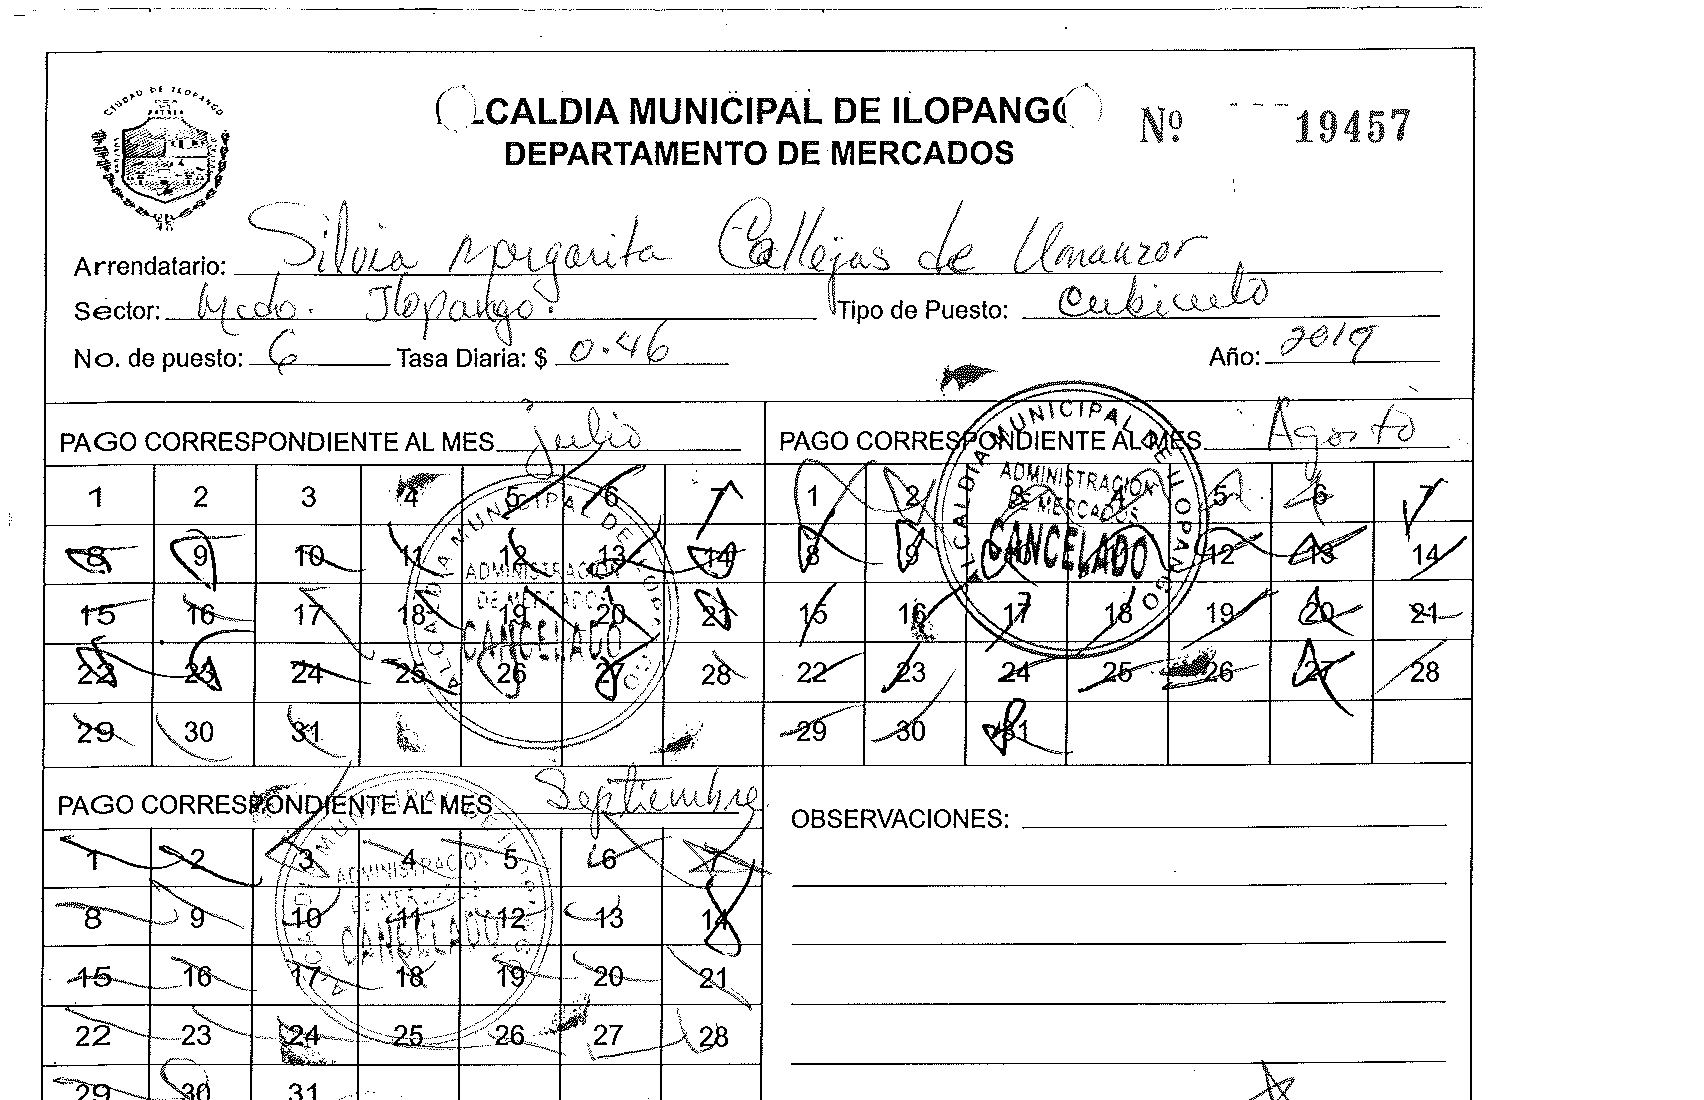 CIUDAD DE ILOPANGO
ALCALDIA MUNICIPAL DE ILOPANGO
DEPARTAMENTO DE MERCADOS
Nº 19457
Arrendatario: Silvia Margarita Callejas de Umanzor
Sector: Mcdo. Ilopango. Tipo de Puesto: Cubiculo
No. de puesto: 6 Tasa Diaria: $ 0.46 Año: 2019
PAGO CORRESPONDIENTE AL MES julio
1 2 3 4 5 6 7
8 9 10 11 12 13 14
15 16 17 18 19 20 21
22 23 24 25 26 27 28
29 30 31
ALCALDIA MUNICIPAL DE ILOPANGO
ADMINISTRACION
DE MERCADOS
CANCELADO
PAGO CORRESPONDIENTE AL MES Agosto
1 2 3 4 5 6 7
8 9 12 13 14
15 16 17 18 19 20 21
22 23 24 25 26 27 28
29 30 31
ALCALDIA MUNICIPAL DE ILOPANGO
ADMINISTRACION
DE MERCADOS
CANCELADO
PAGO CORRESPONDIENTE AL MES Septiembre
1 2 3 4 5 6 7
8 9 10 11 12 13 14
15 16 17 18 19 20 21
22 23 24 25 26 27 28
29 30 31
ALCALDIA MUNICIPAL DE ILOPANGO
ADMINISTRACION
DE MERCADOS
CANCELADO
OBSERVACIONES: